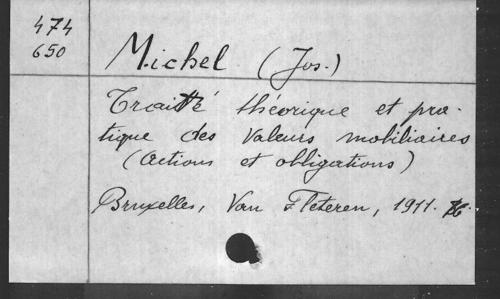 474
650
Michel (Jos.)
Traité théorique et pra-
tique des Valeurs mobiliaires
(Actions et obligations)
Bruxelles, Van Fleteren, 1911.